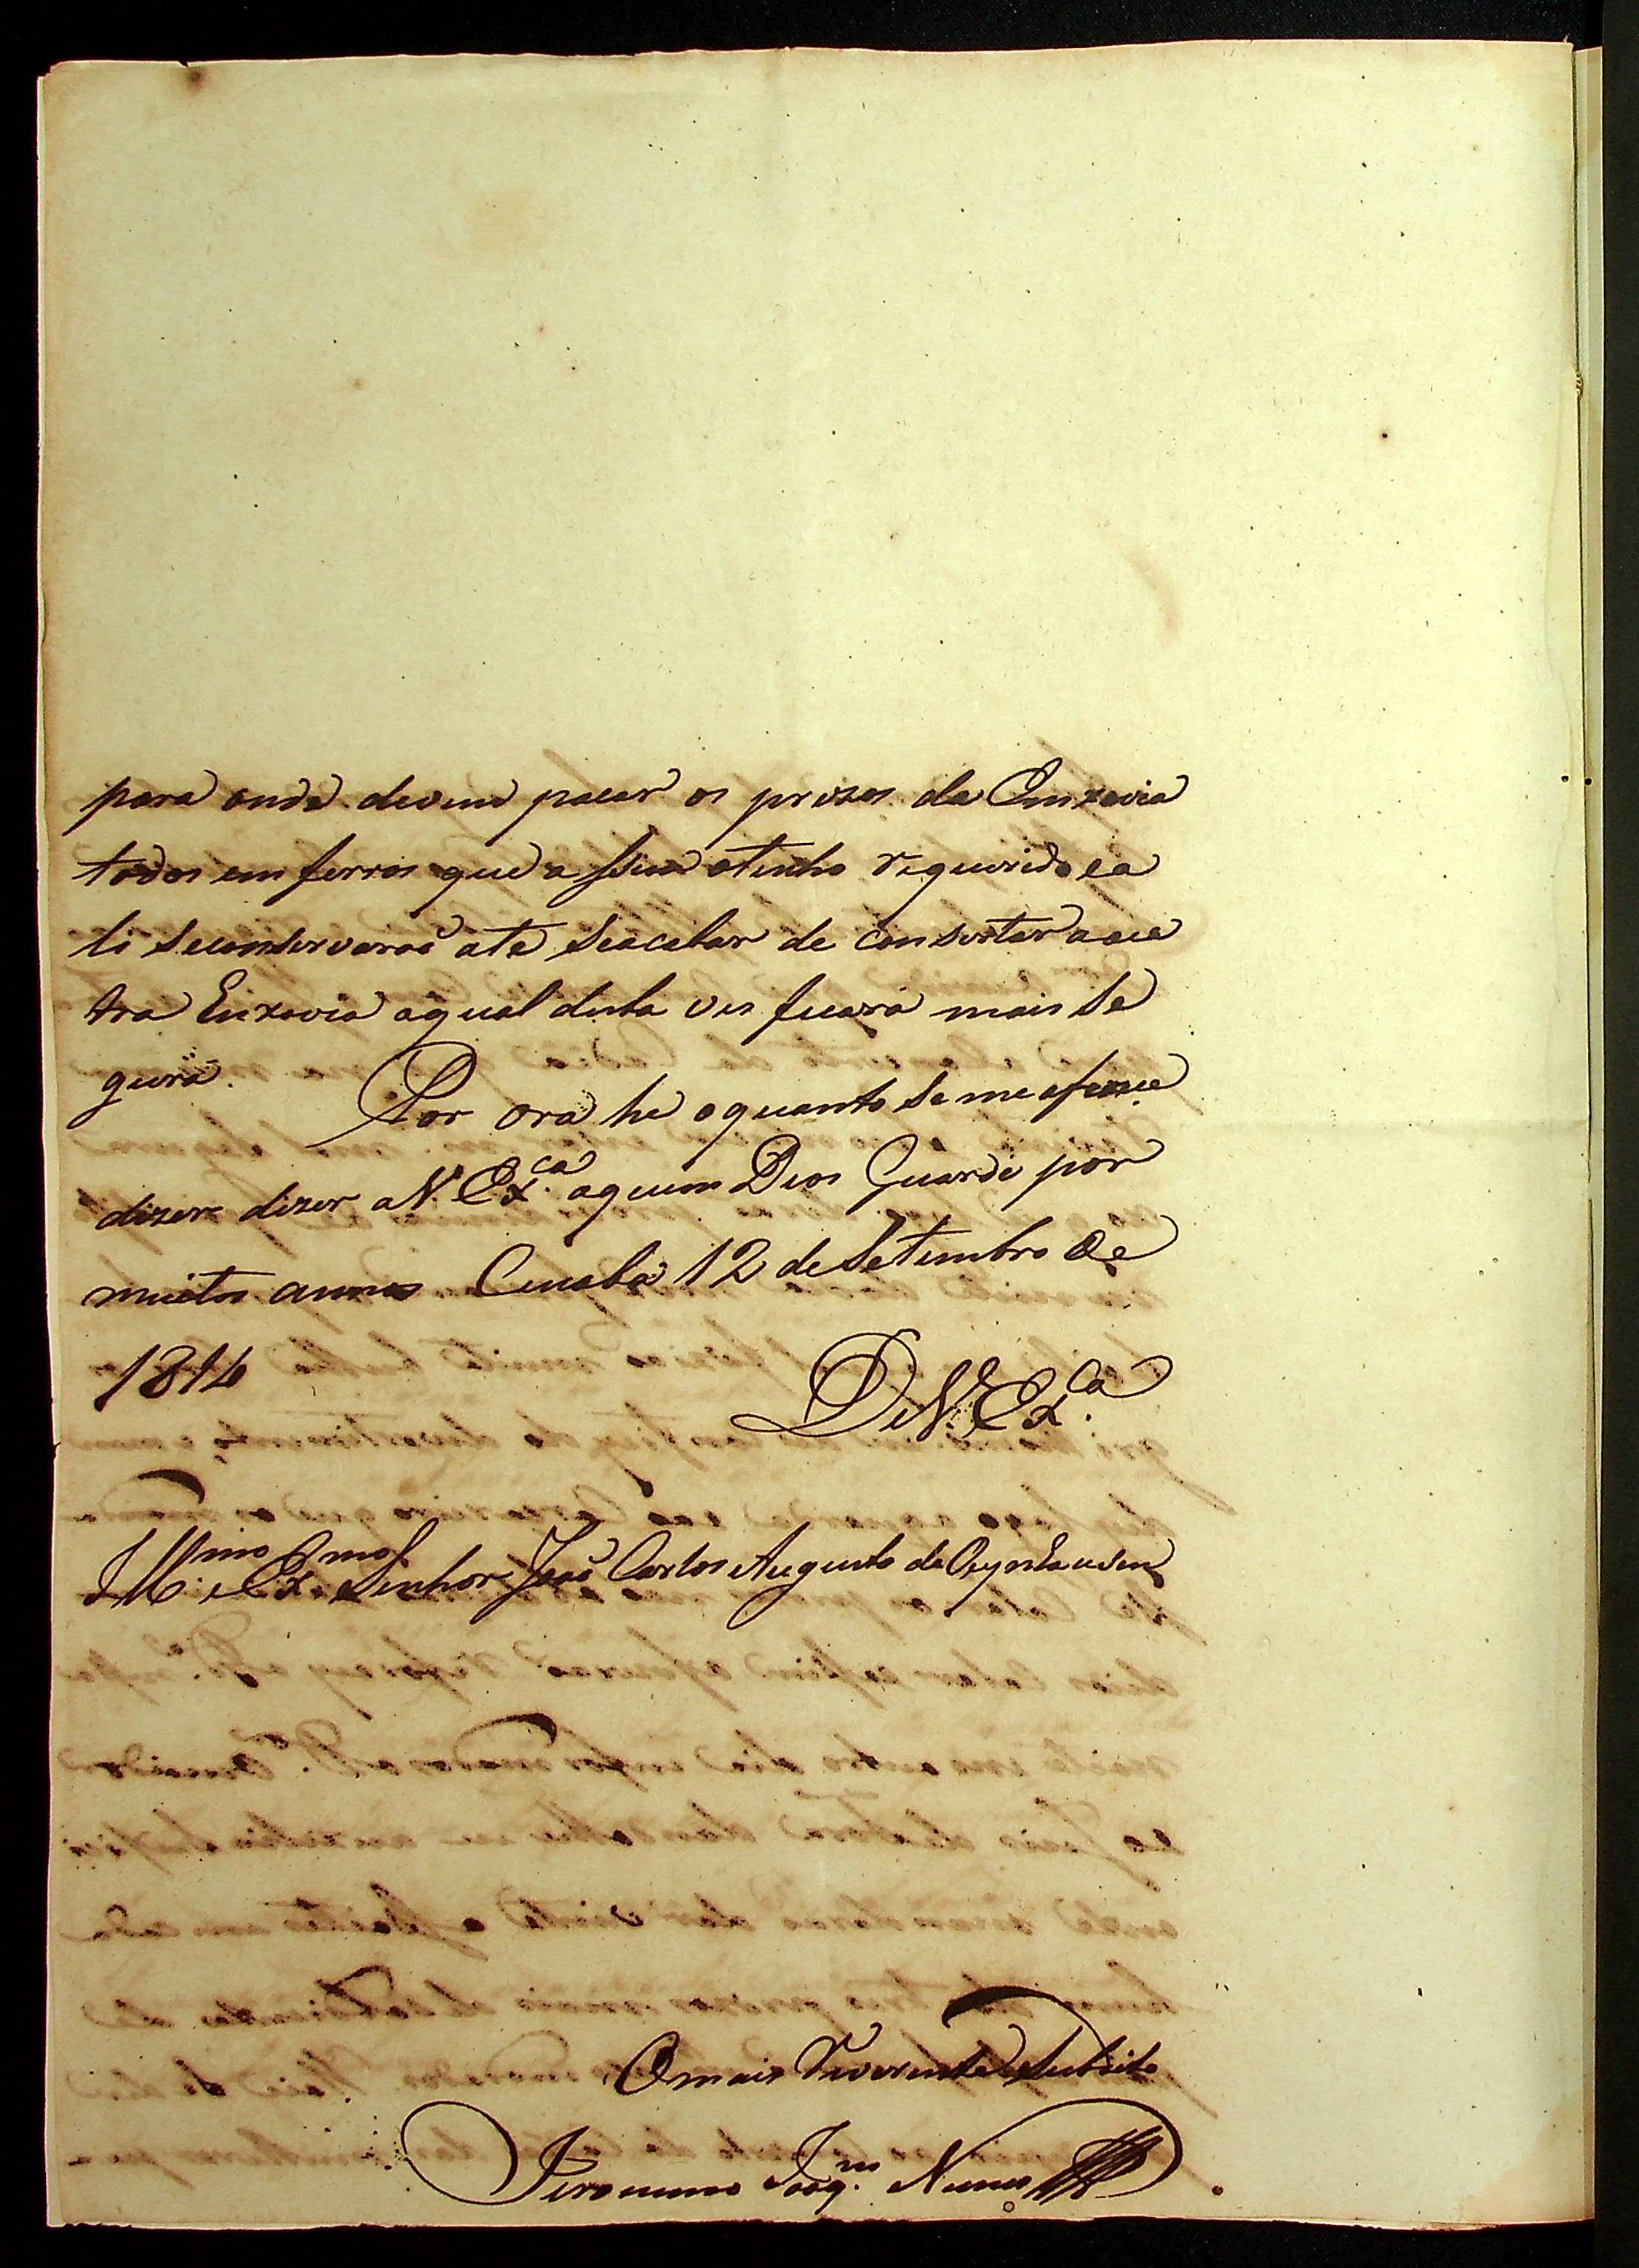 para onde devem pacar os prezos da Enxovia
todos em ferros que a ssim otinho requerido ea
li seconservaraõ ate seacabar de consertar aou
tra Enxovia aqual desta ves ficará mais se
gura.
Por ora he oquanto se me oferece
dizer dizer aV. Ex.ca aquem Deos Guarde por
muitos annos Cuiabá 12 de Setembro de
1814
De V. Ex.ca
Ill.mo e Ex.mo Senhor Joaõ Carlos Augusto de Oeynhausen
Omais Reverente Subdito
Jeronimo Joaq.m Nunes